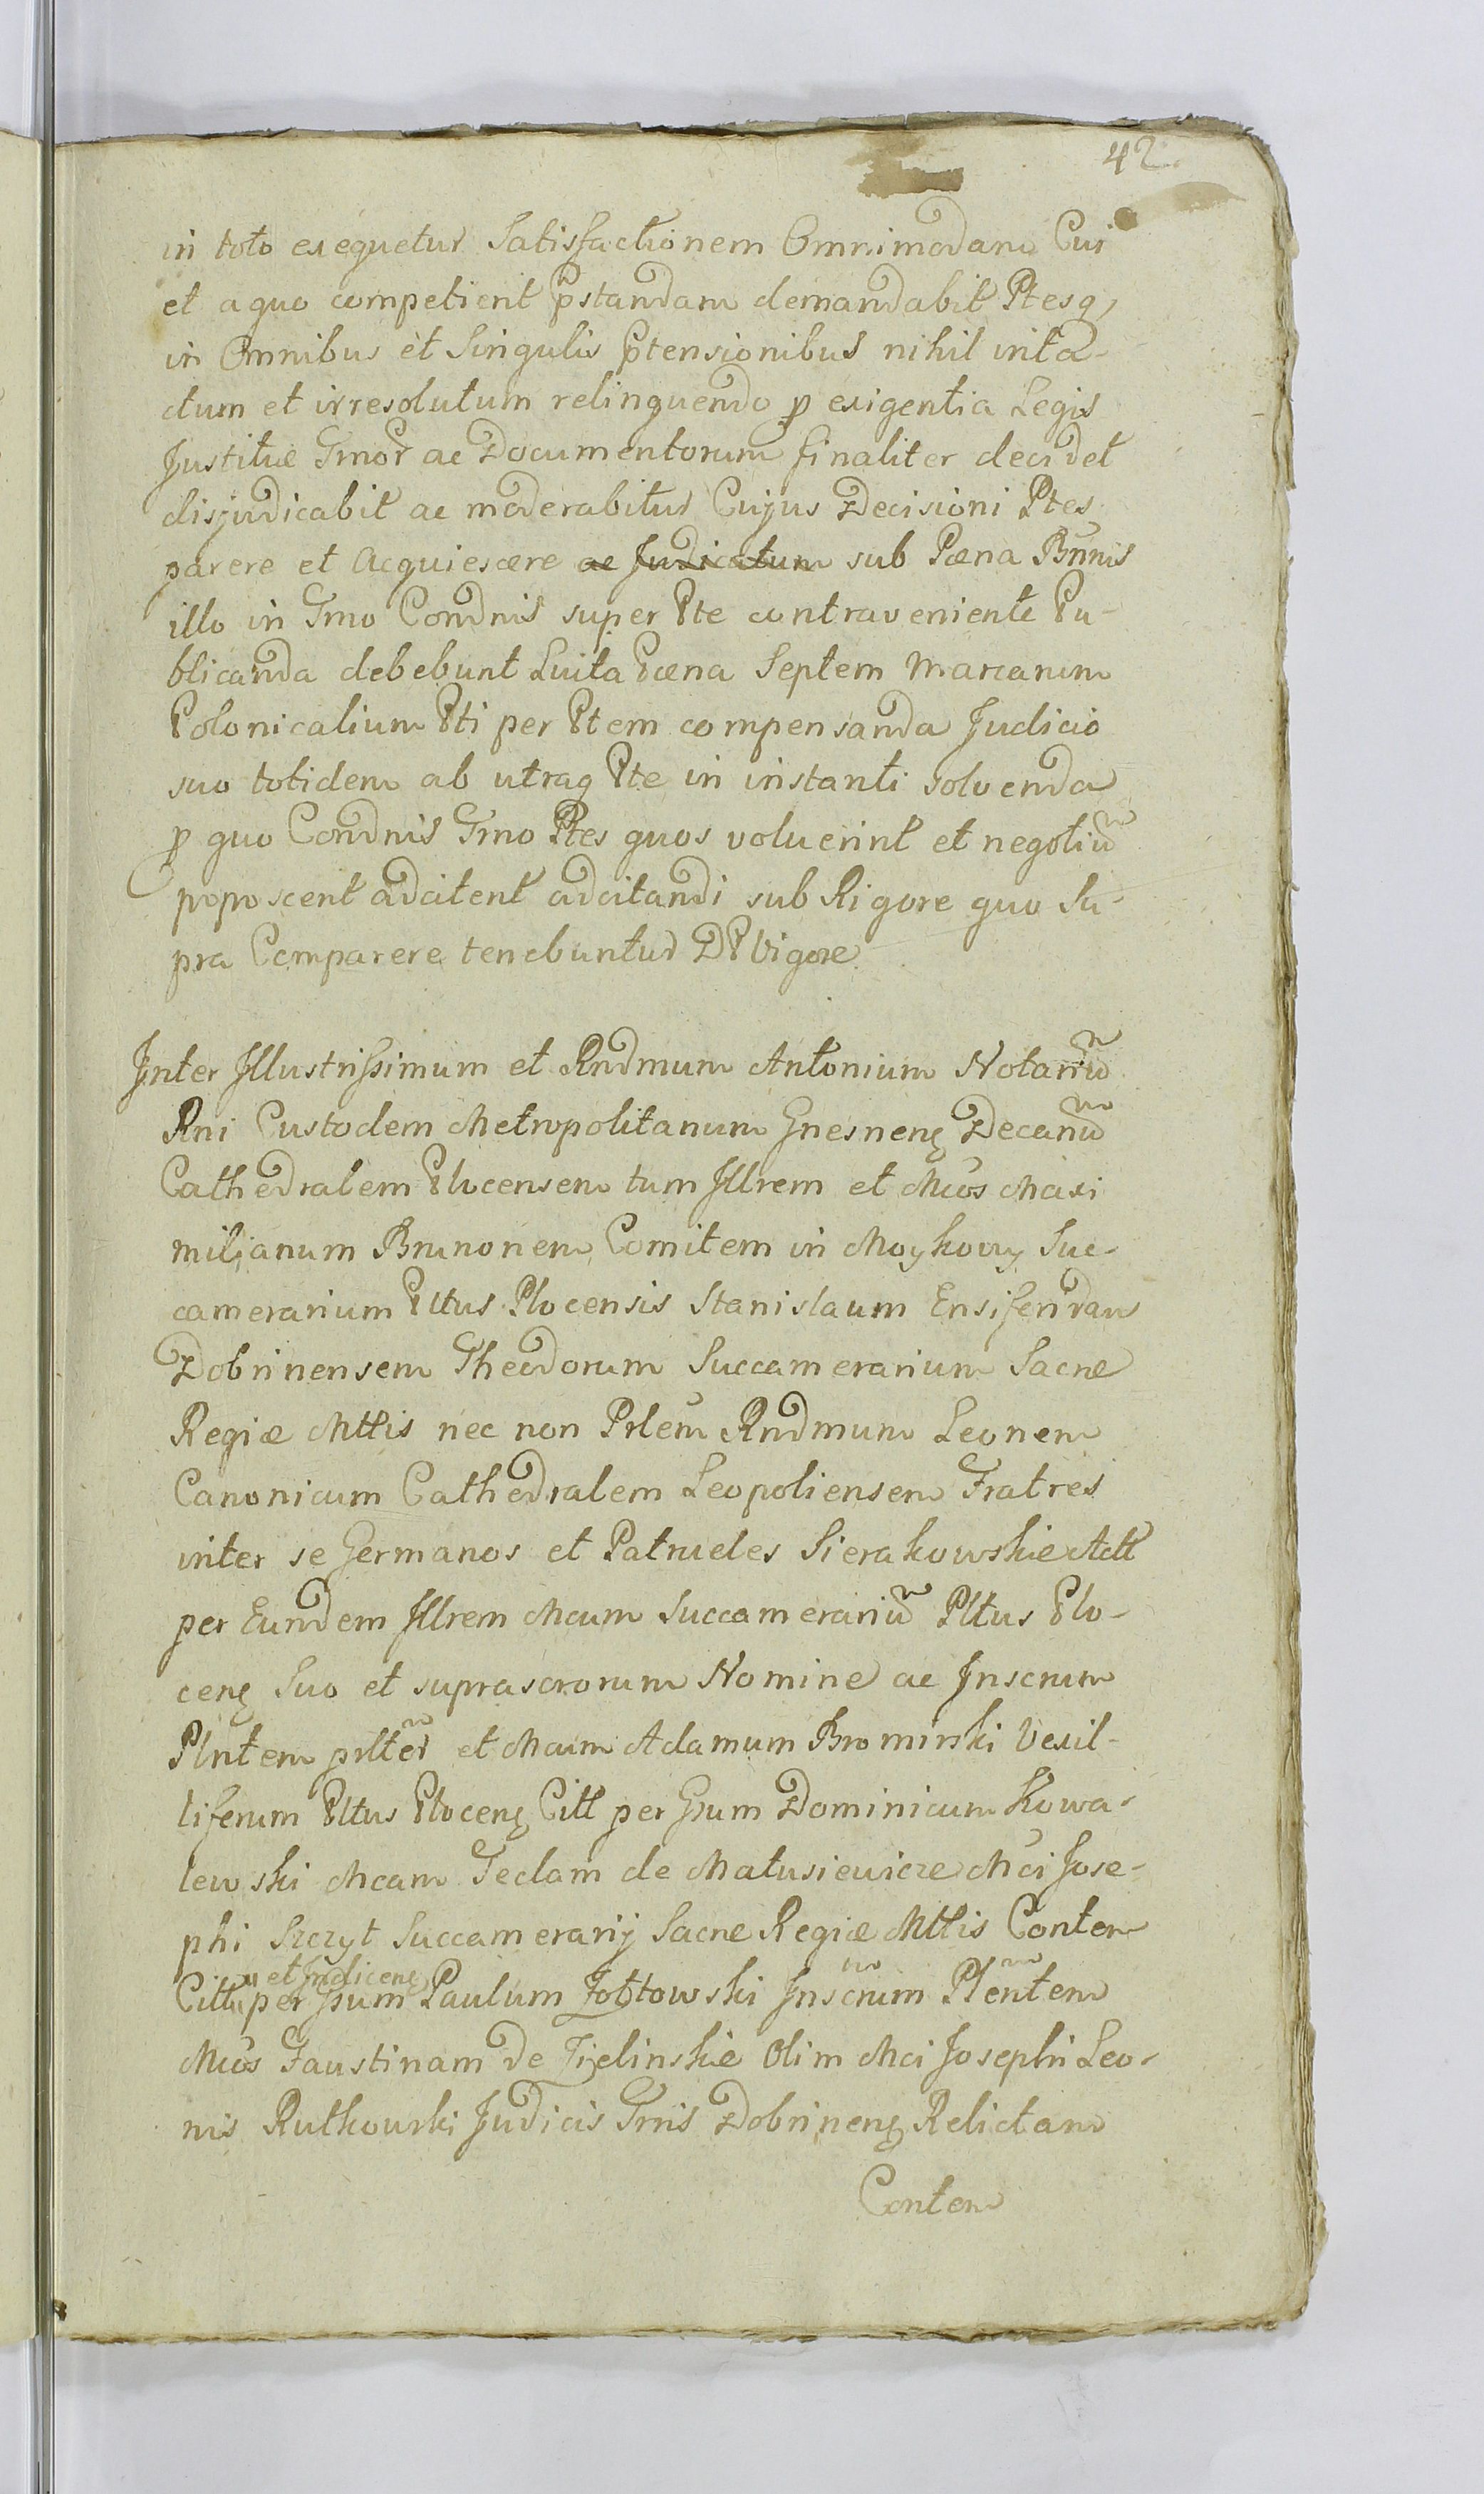 42
in toto exequetur Satisfactionem Omnimodam Cui
et a quo competierit pstandam demandabit Ptesq,
in Omnibus et Singulis Ptensionibus nihil inta-
ctum et irresolutum relinquendo p exigentia Legis
Justitiæ Tmor ac Documentorum finaliter decidet
disjudicabit ac moderabitur Cujus Decisioni Ptes
parere et Acquiescere ac Judicatum sub Pæna Bnnis
illo in Tmo Condnis super Pte contraveniente Pu-
blicanda debebunt Luita Pæna Septem Marcarum
Polonicalium Pti per Ptem compensanda Judicio
suo totidem ab utraq Pte in instanti solvenda
p quo Condnis Tmo Ptes quos voluerint et negotiu
poposcerit adcitent adcitandi sub Rigore quo Su-
pra Comparere tenebuntur D P Vigore
Inter Illustrissimum et Rndmum Antonium Notariu
Rni Custodem Metropolitanum Gnesnenς Decanu
Cathedralem Plocensem tum Illrem et Mcos Maxi
milianum Brunonem Comitem in Moykowy Suc-
camerarium Pltus Plocensis Stanislaum Ensiferidam
Dobrinensem Theodorum Succamerarium Sacræ
Regiæ Mttis nec non Prlem Rndmum Leonem
Canonicum Cathedralem Leopoliensem Fratres
inter se Germanos et Patrueles Sierakowskie Act
per Eundem Illrem Mcum Succamerariu Pltus Plo-
cenς Suo et suprascrorum Nomine ac Inscrum
Plntem prlter et Mcum Adamum Bromirski Vexil-
liferum Pltus Plocenς Citt per Gsum Dominicum Kowa-
lewski Mcam Teclam de Matusiewicze Mci Jose-
phi Szczyt Succamerarij Sacræ Regiæ Mttis Contem
et Indicenς
Citt per Gsum Paulum Zołtowski Inscrum Plentem
Mcos Faustinam de Zijelinskie Olim Mci Josephi Leo-
nis Rutkowski Judicis Trris Dobrinenς Relictam
Contem